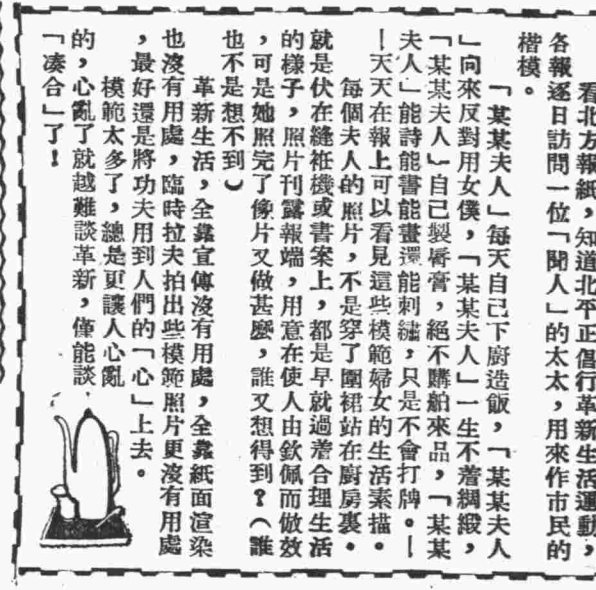 看北方報紙，知道北平正倡行革新生活運動，
各報逐日訪問一位「聞人」的太太，用來作市民的
楷模。
「某某夫人」每天自己下廚造飯，「某某夫人
」向來反對用女僕，「某某夫人」一生不着綢緞，
「某某夫人」自己製唇膏，絕不購舶來品，「某某
夫人」能詩能書能畫還能刺繡，只是不會打牌。—
—天天在報上可以看見這些模範婦女的生活素描。
每個夫人的照片，不是穿了圍裙站在廚房裏。
就是伏在縫袵機或書案上，都是早就過着合理生活
的樣子，照片刊露報端，用意在使人由欽佩而倣效
，可是她照完了像片又做甚麼，誰又想得到？（誰
也不是想不到）
革新生活，全靠宣傳沒有用處，全靠紙面渲染
也沒有用處，臨時拉夫拍出些模範照片更沒有用處
，最好還是將功夫用到人們的「心」上去。
模範太多了，總是更讓人心亂
的，心亂了就越難談革新，僅能談
「凑合」了！